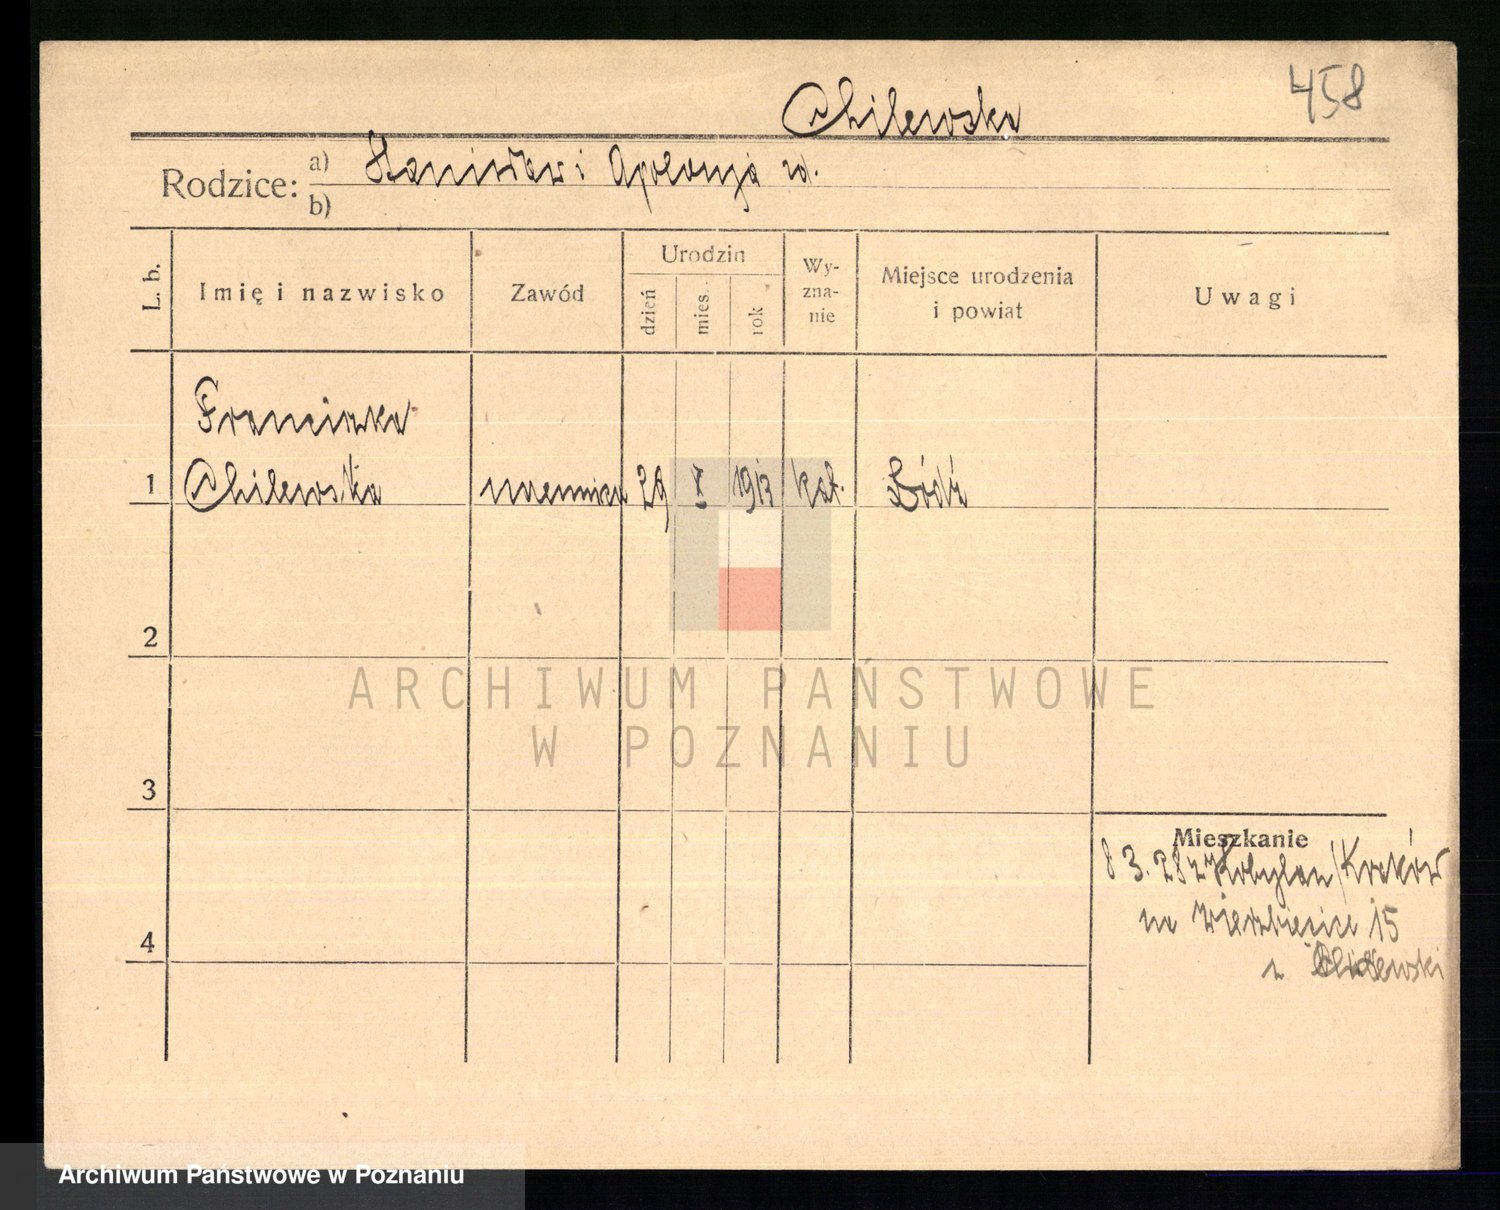 458
Chilewska
Rodzice: a) Stanisław i Apolonja zd.
b)
L. b.
Imię i nazwisko
Zawód
Urodzin
dzień
mies.
rok
Wy-
zna-
nie
Miejsce urodzenia
i powiat
Uwagi
Franciszka
1 Chilewska uczennica 29 X 1913 kat. Łódź
2
3
4
Mieszkanie
8 3. 28 z Kobylan/Kraków
na Wierzbięcice 15
ARCHIWUM PAŃSTWOWE
W POZNANIU
Archiwum Państwowe w Poznaniu